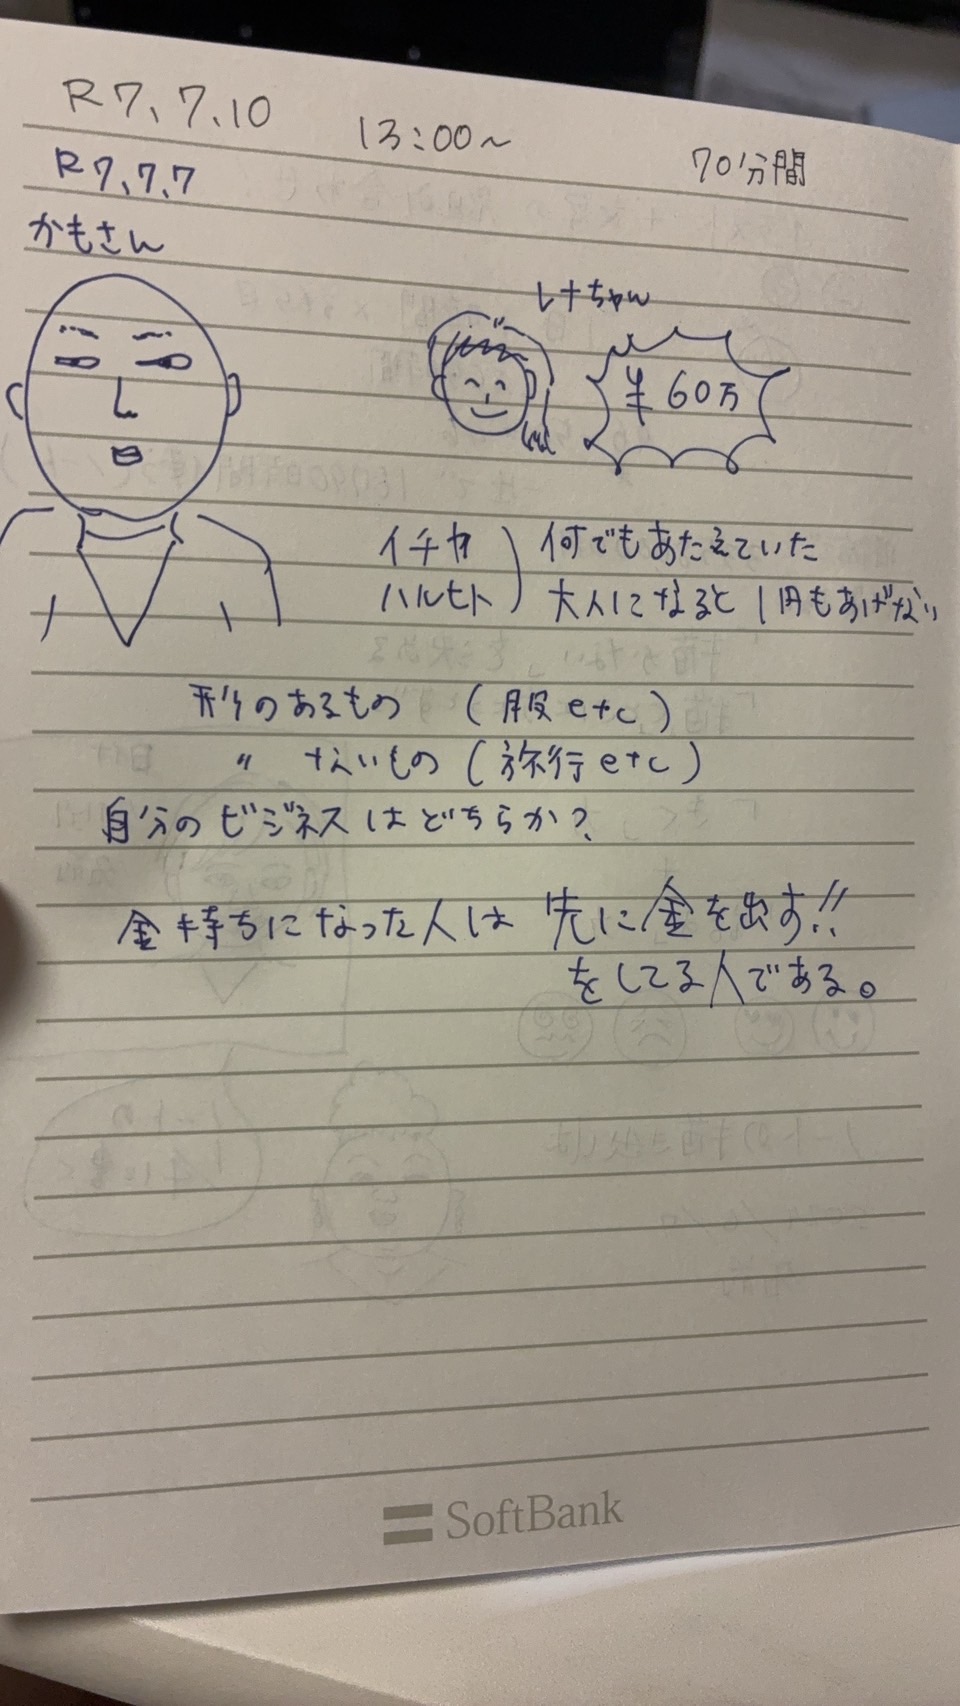 R7、7、10
13:00～
70分間
R7、7、7
かもさん
レナちゃん
¥60万
イチヤ
ハルヒト
何でもあたえていた
大人になると1円もあげない
形のあるもの (服etc)
〃 ないもの (旅行etc)
自分のビジネスはどちらか?
金持ちになった人は 先に金を出す!!
をしてる人である。
SoftBank